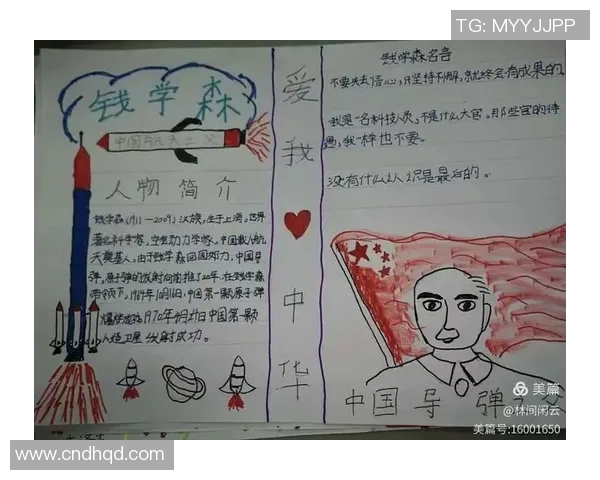 TG: MYYJJPP
钱学森
中国航天之父
人物简介
钱学森(1911—2009)汉族,生于上海。世界
著名科学家,空气动力学家,中国载人航
天奠基人,由于钱学森回国效力,中国导
弹,原子弹的发射向前推了20年。在钱学森
带领下,1964年10月16日,中国第一颗原子弹
爆炸成功1970年4月24日中国第一颗
人造卫星发射成功。
爱我
中华
钱学森名言
不要失去信心,只坚持不懈,就终会有成果的。
我是一名科技人员,不是什么大官。那些官的待
遇,我一样也不要。
没有什么认识是最后的。
中国导弹之父
美篇
@林间闲云
美篇号:16001650
www.cndhqd.com